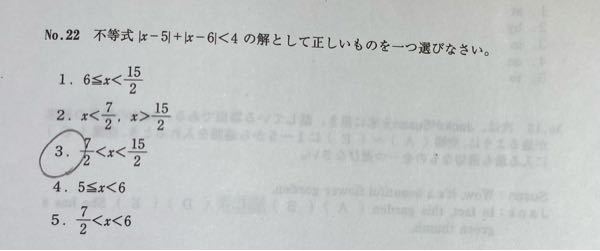 No.22 不等式 |x−5|+|x−6|<4 の解として正しいものを一つ選びなさい。
1. 6≦x<15/2
2. x<7/2, x>15/2
3. 7/2<x<15/2
4. 5≦x<6
5. 7/2<x<6